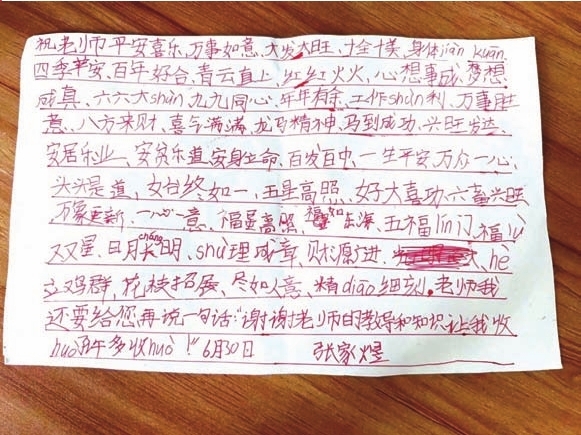 祝老师平安喜乐、万事如意、大发大旺、十全十美、身体jiàn kuān
四季平安、百年好合、青云直上、红红火火、心想事成、梦想
成真、六六大shùn、九九同心、年年有余、工作shùn利、万事胜
意、八方来财、喜气满满、龙马精神、马到成功、兴旺发达、
安居乐业、安贫乐道、安身生命、百发百中、一生平安、万众一心、
头头是道、始终如一、五星高照、好大喜功、六畜兴旺
万象更新、一心一意、福星高照、福如东深、五福lín门、福lù
双星、日月长cháng明、shù理成章、财源广进、hè
立鸡群、花枝招展、尽如人意、精diāo细刻。老师我
还要给您再说一句话:“谢谢老师的教导和知识让我收
huò 年多收huò!”6月30日 张家煜